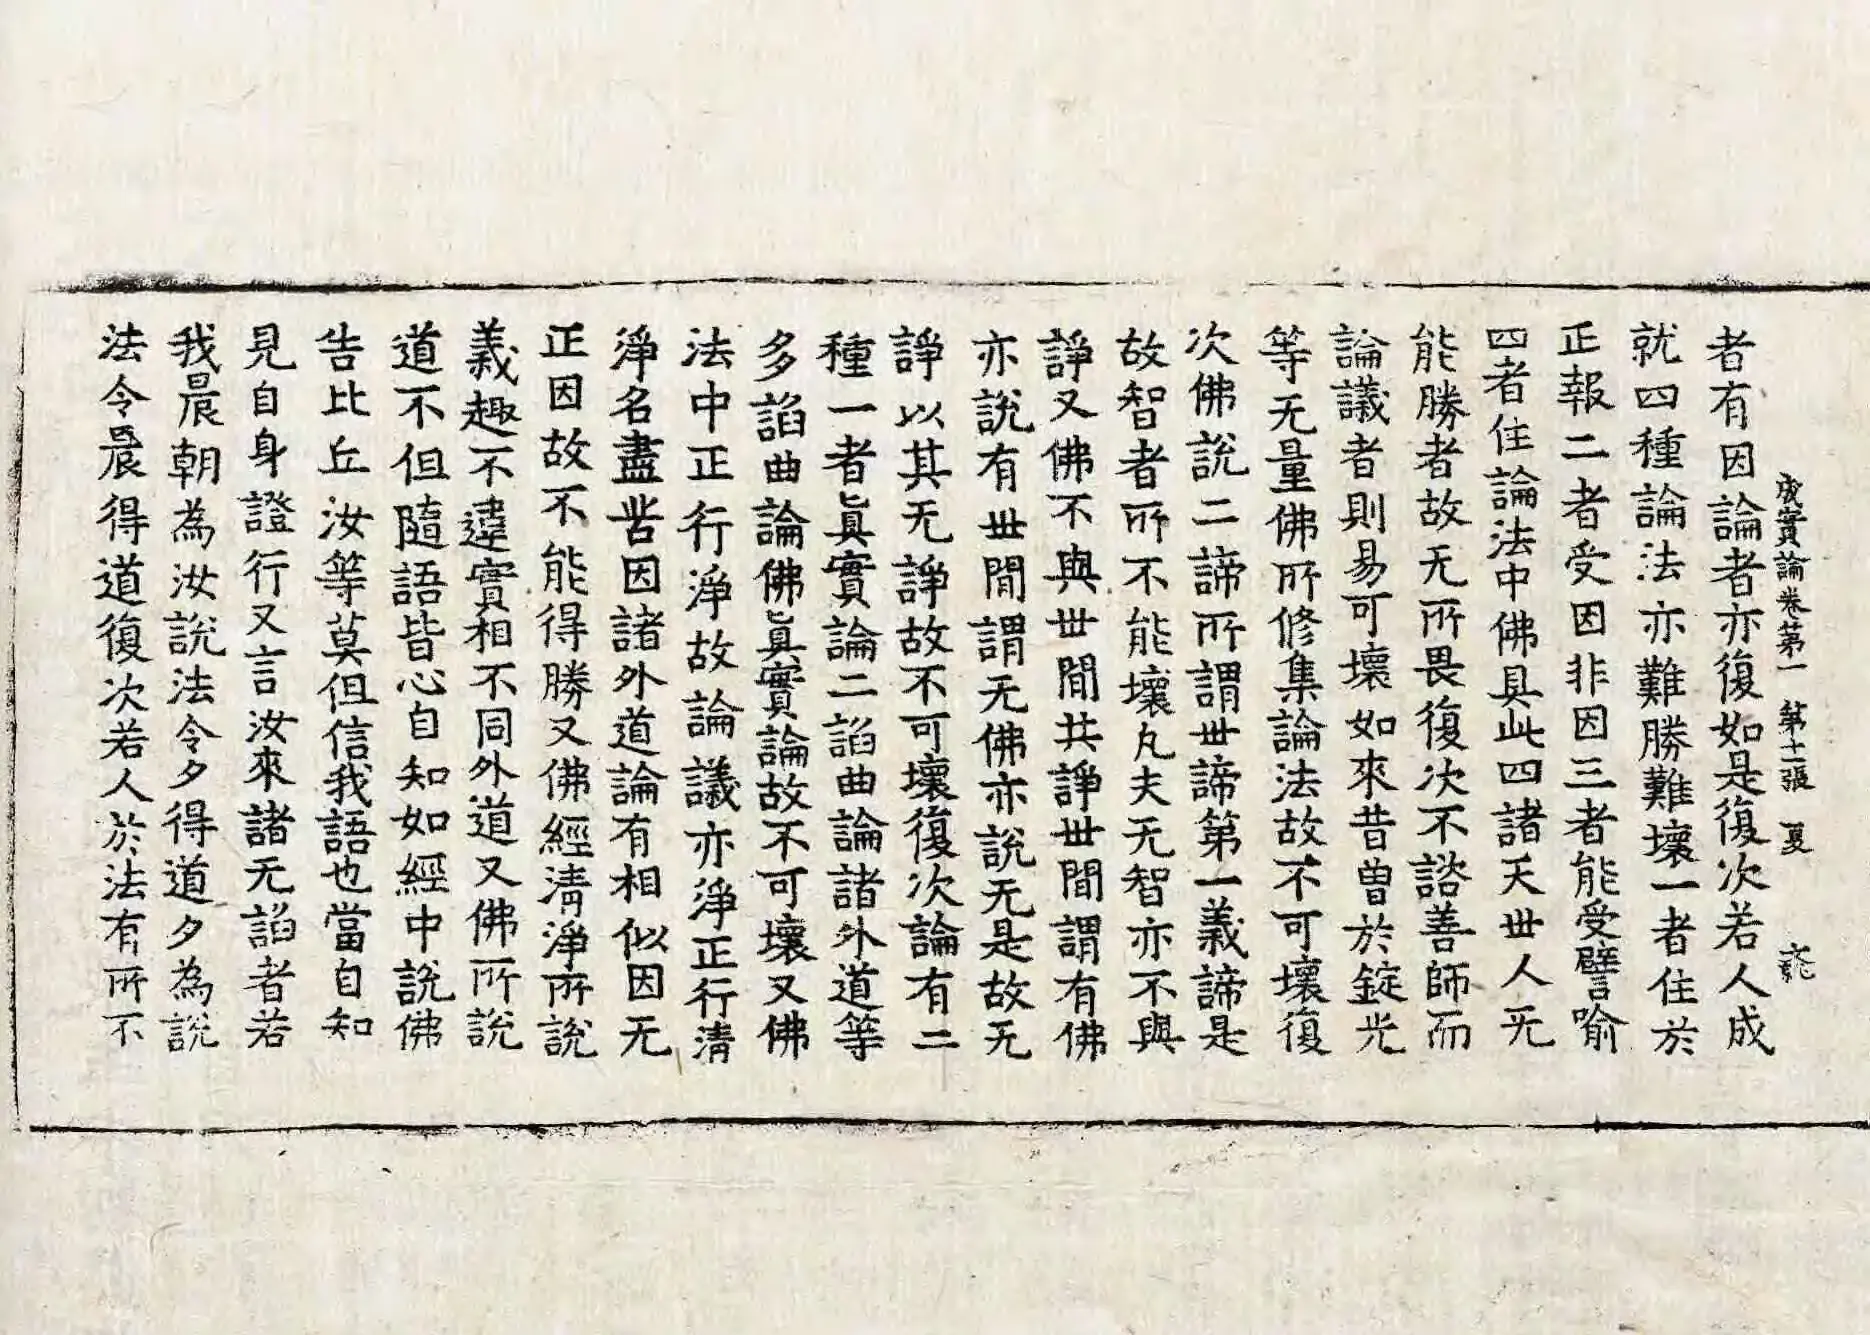 成實論卷第一 第十二張 夏
者有因論者亦復如是復次若人成
就四種論法亦難勝難壞一者住於
正報二者受因非因三者能受譬喻
四者住論法中佛具此四諸天世人无
能勝者故无所畏復次不諮善師而
論議者則易可壞如來昔曾於錠光
等无量佛所修集論法故不可壞復
次佛說二諦所謂世諦第一義諦是
故智者所不能壞凡夫无智亦不與
諍又佛不與世間共諍世間謂有佛
亦說有世間謂无佛亦說无是故无
諍以其无諍故不可壞復次論有二
種一者眞實論二諂曲論諸外道等
多諂曲論佛眞實論故不可壞又佛
法中正行淨故論議亦淨正行清
淨名盡苦因諸外道論有相似因无
正因故不能得勝又佛經清淨所說
義趣不違實相不同外道又佛所說
道不但隨語皆心自知如經中說佛
告比丘汝等莫但信我語也當自知
見自身證行又言汝來諸无諂者若
我晨朝為汝說法令夕得道夕為說
法令晨得道復次若人於法有所不